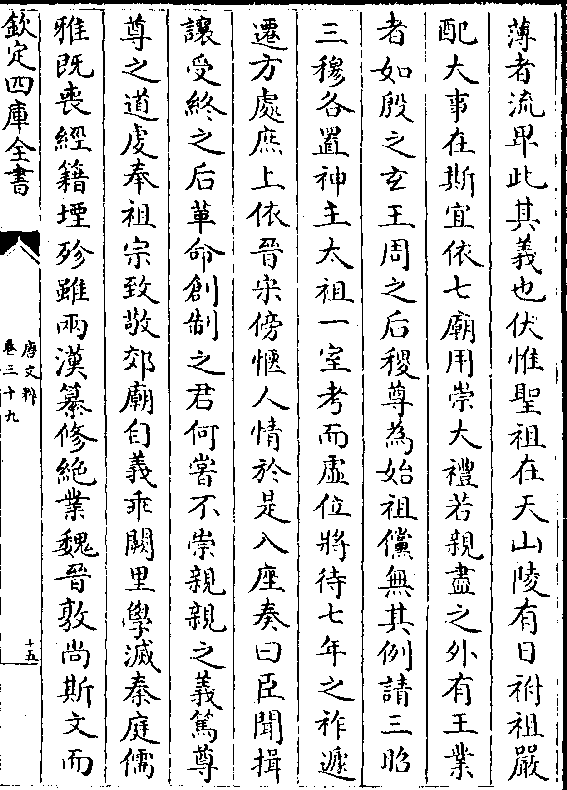 薄者流卑此其義也伏惟聖祖在天山陵有日祔祖嚴
配大事在斯宜依七廟用崇大禮若親盡之外有王業
者如殷之玄王周之后稷尊為始祖儻無其例請三昭
三穆各置神主太祖一室考而虚位將待七年之祚遞
遷方處庶上依晉宋傍愜人情於是入座奏曰臣聞揖
讓受終之后革命創制之君何嘗不崇親親之義篤尊
尊之道虔奉祖宗致敬郊廟自義乖闕里學滅秦庭儒
雅既喪經籍堙殄雖兩漢纂修絶業魏晉敦尚斯文而
欽定四庫全書
唐文粹
卷三十九
十五